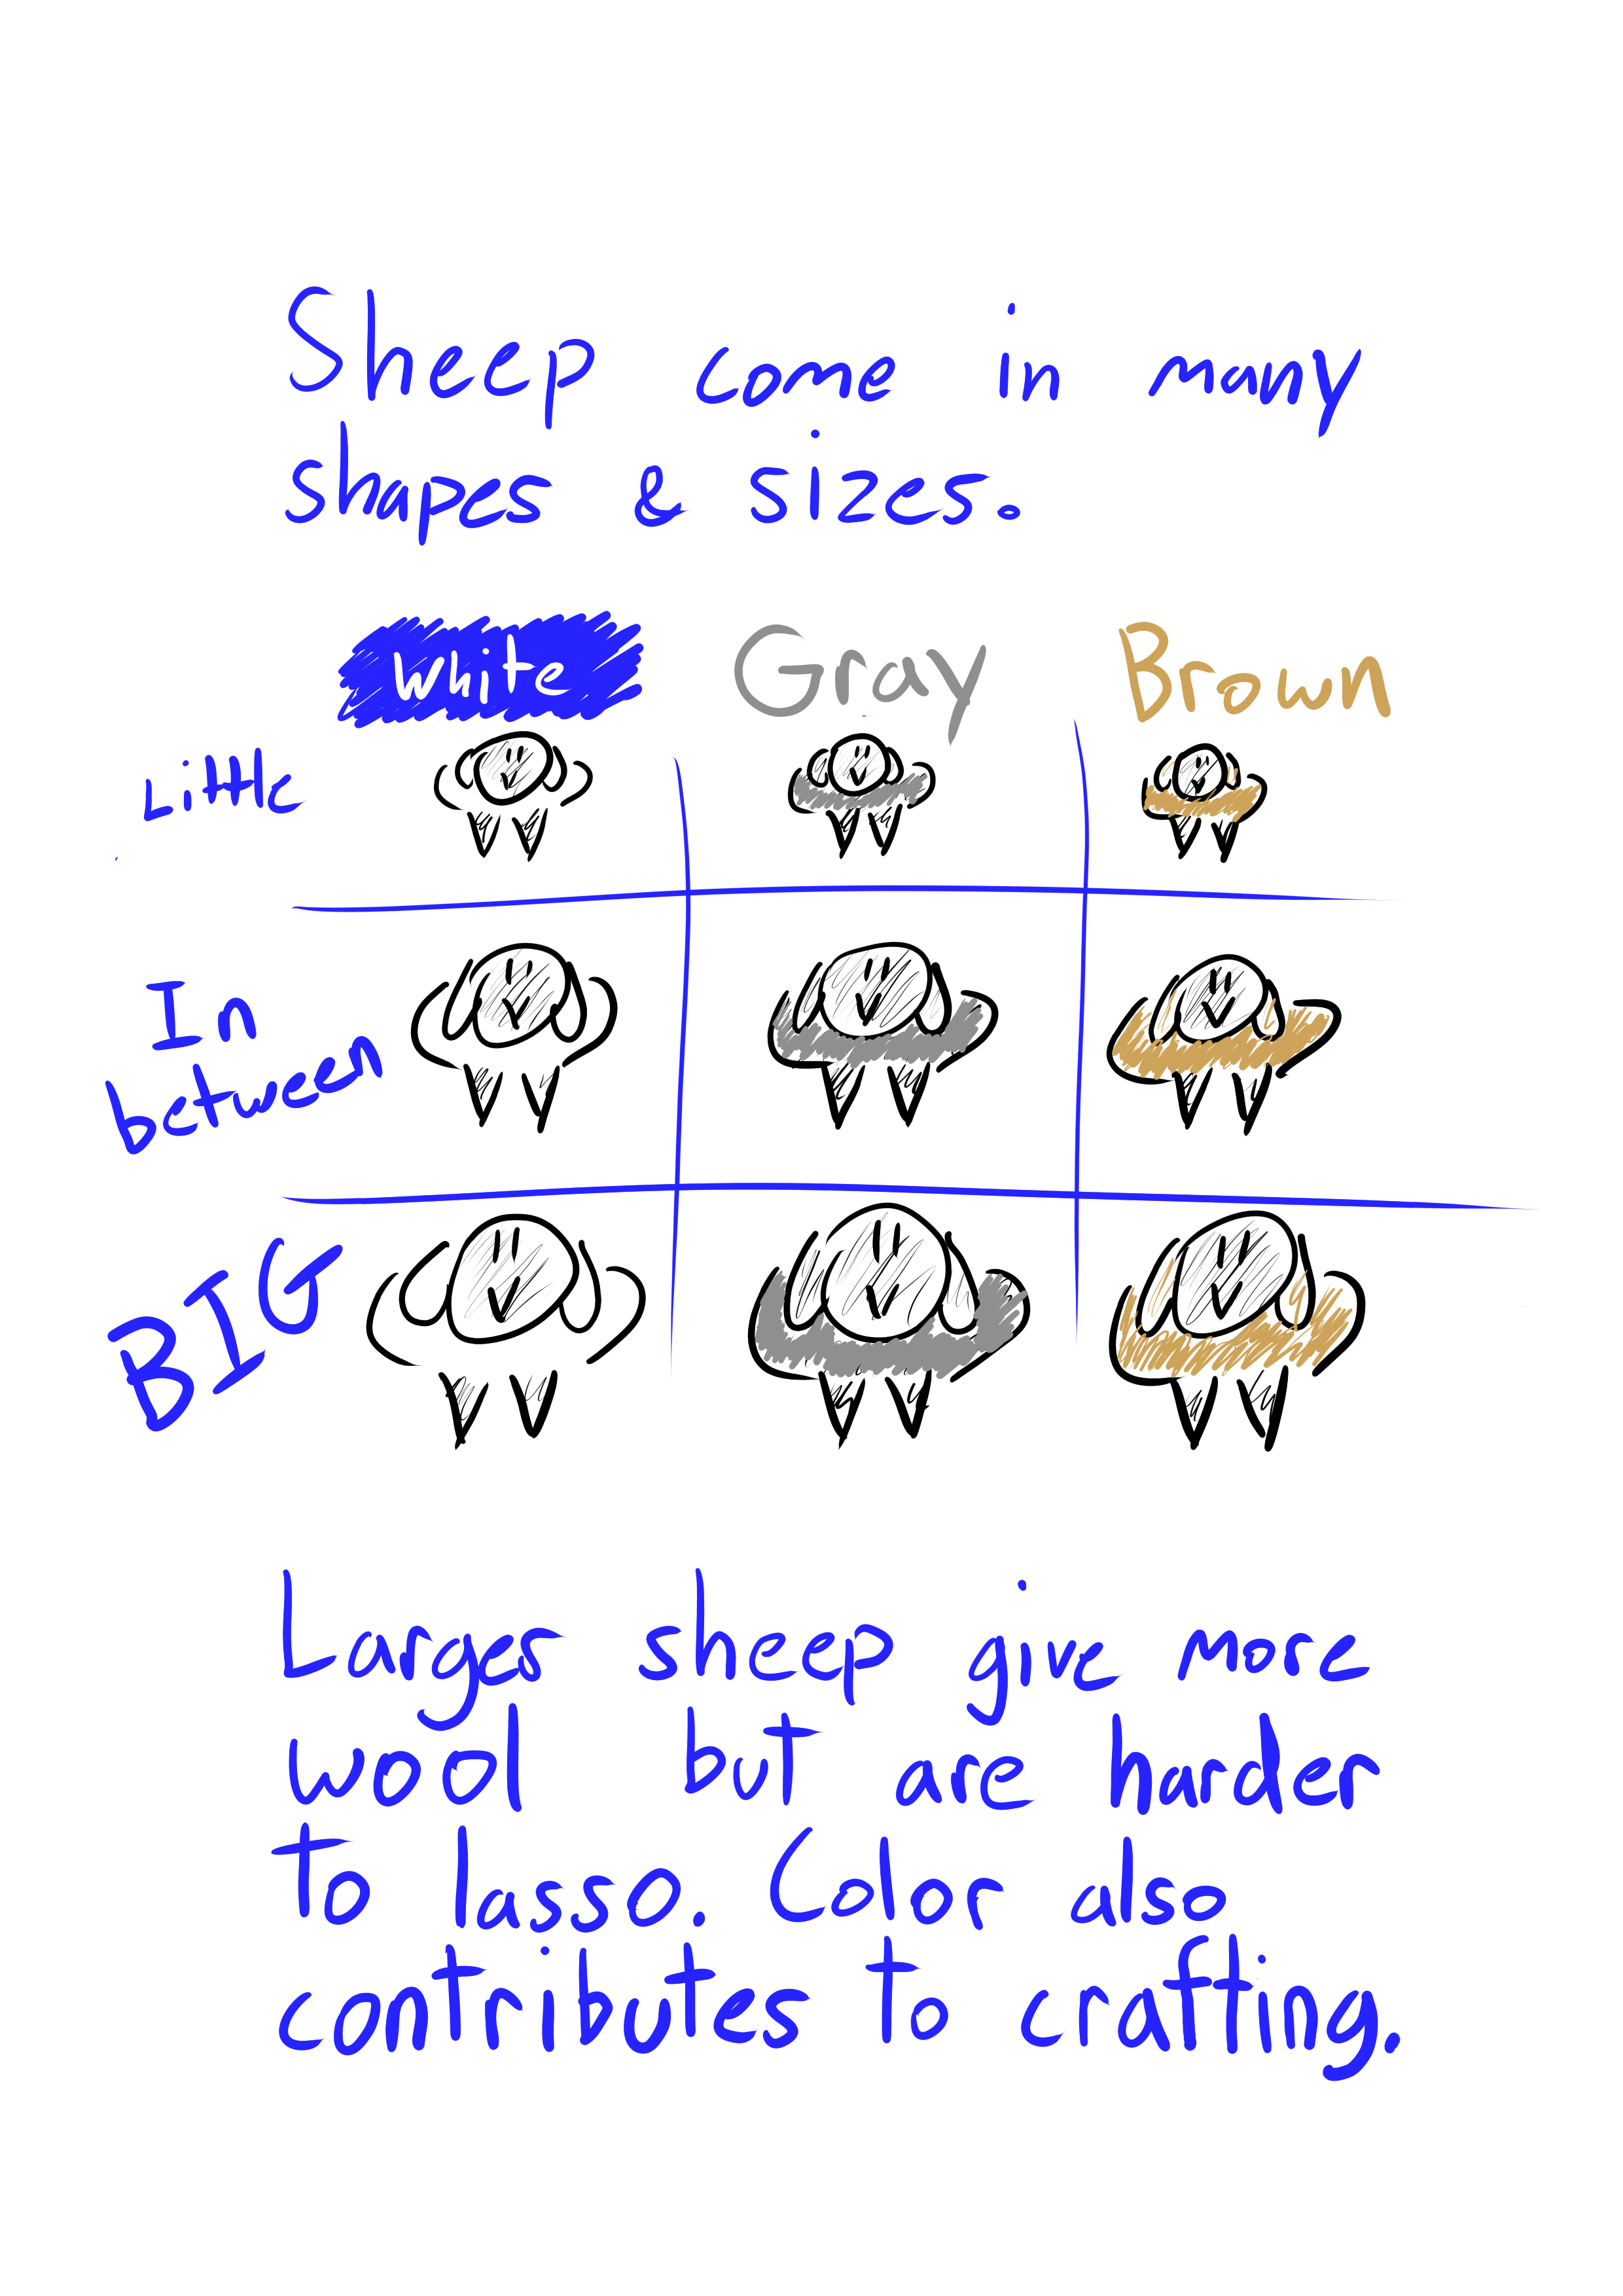 Sheep come in many
shapes & sizes.
White Gray Brown
Little
In
between
BIG
Larges sheep give more
wool but are harder
to lasso. Color also
contributes to crafting.